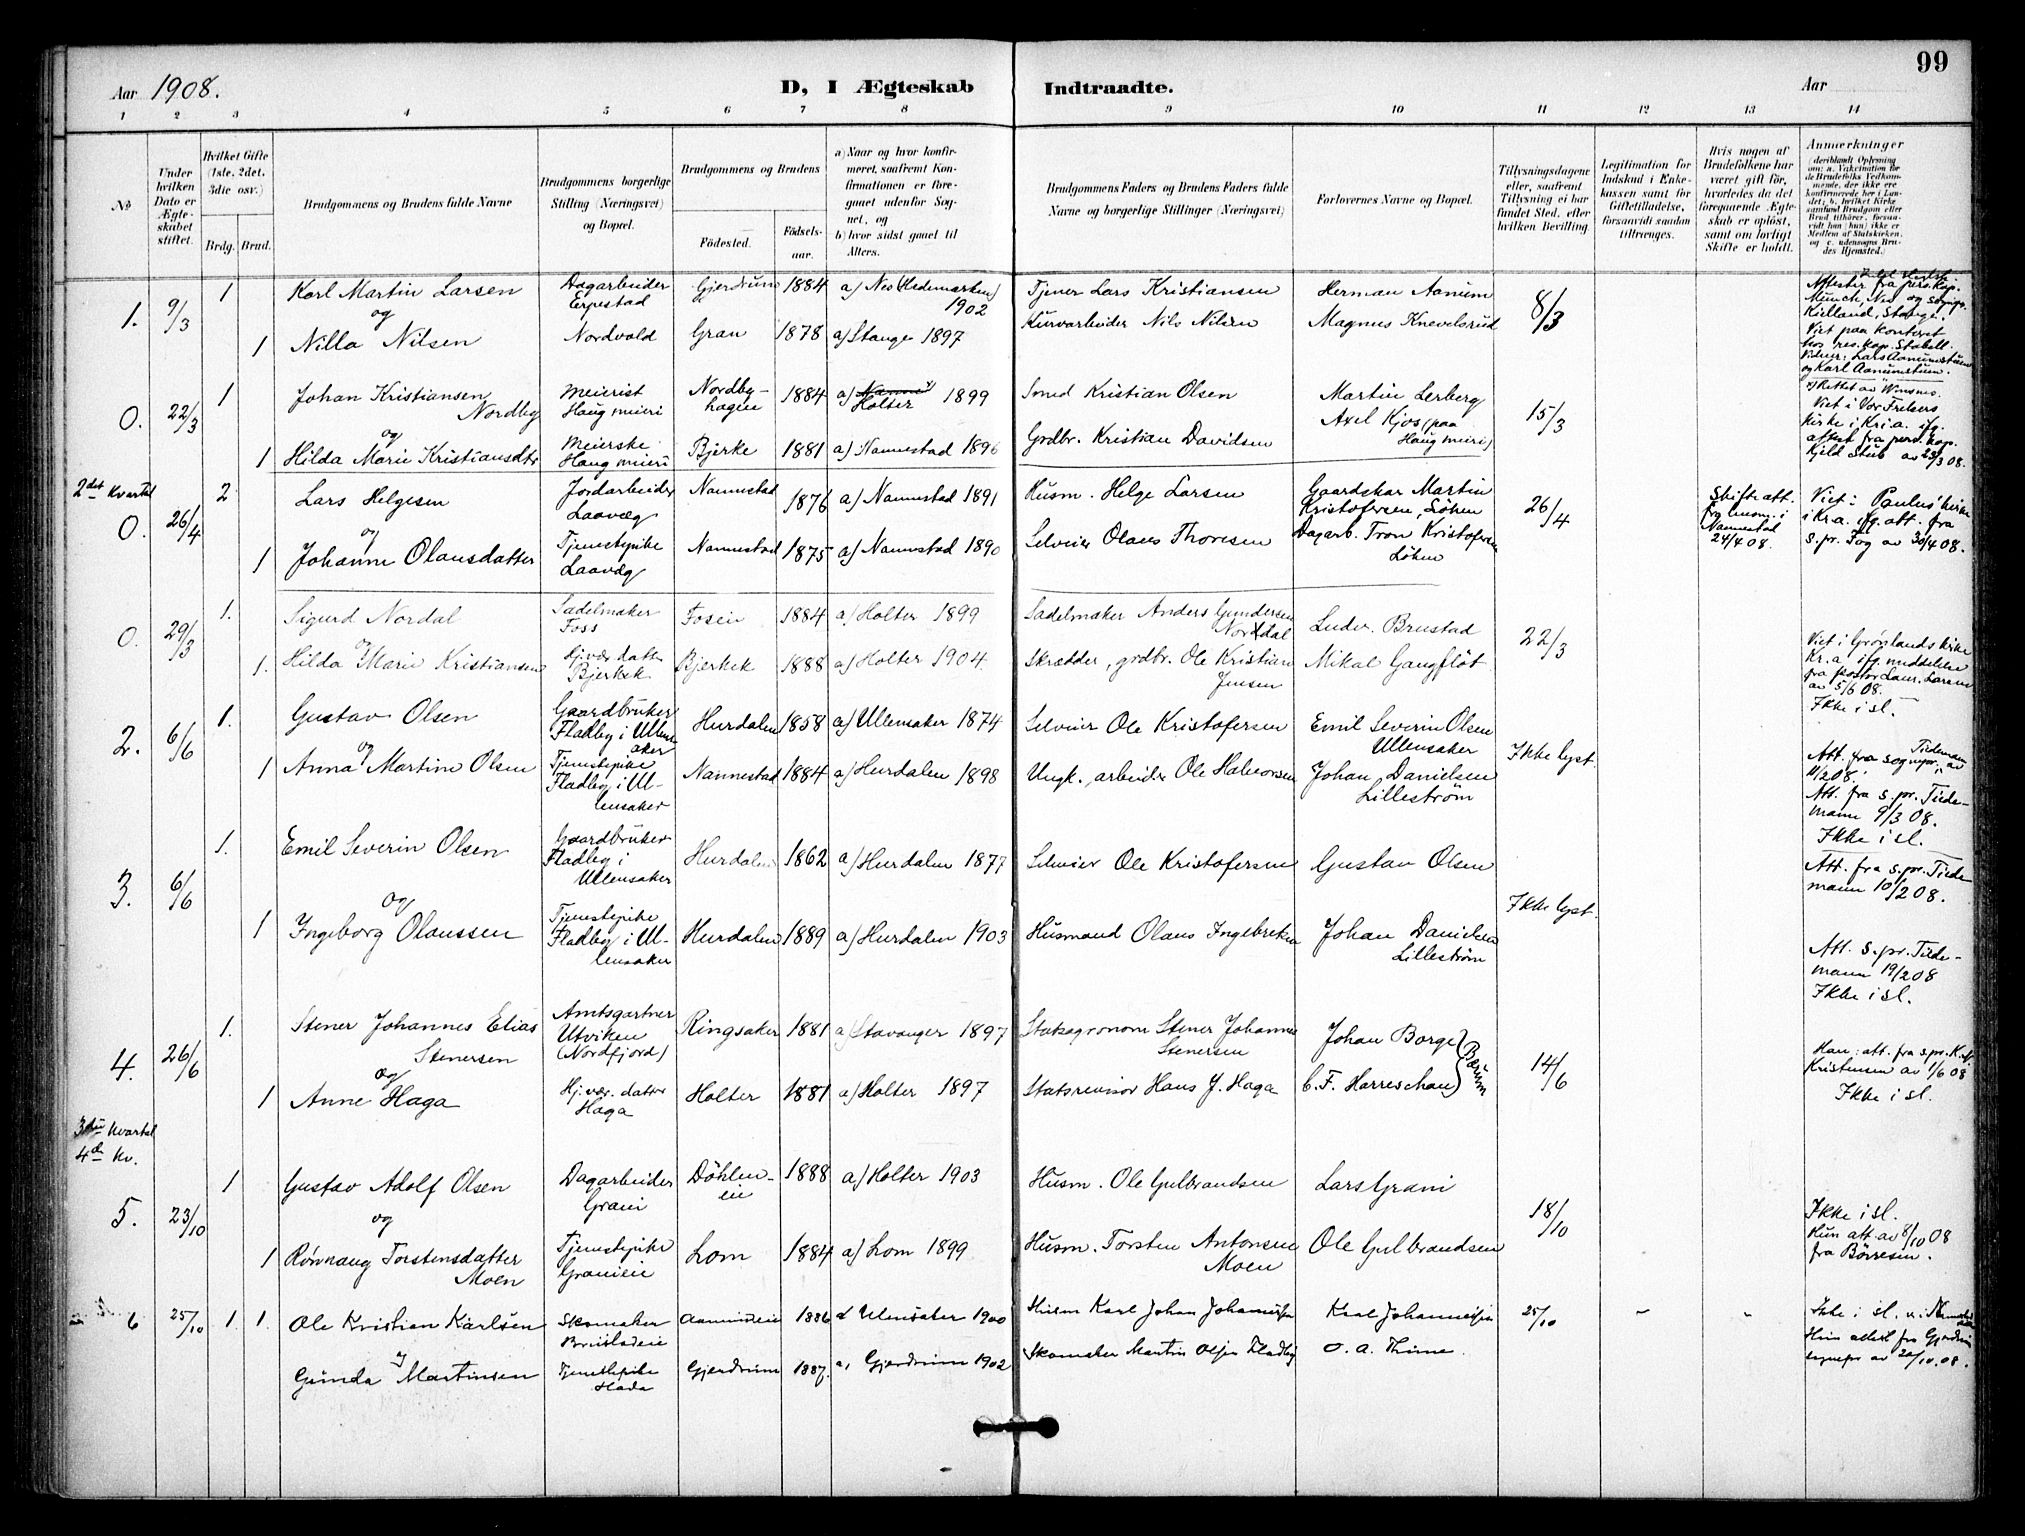 99
Aar 1908.
D, I Ægteskab Indtraadte.
Aar
1 2 3 4 5 6 7 8 9 10 11 12 13 14
No
Under hvilken Dato er Ægteskabet stiftet.
Hvilket Gifte (1ste, 2det, 3die osv.)
Brdg. Brud.
Brudgommens og Brudens fulde Navne
Brudgommens borgerlige Stilling (Næringsvei) og Bopæl.
Brudgommens og Brudens
Födested.
Födselsaar.
a) Naar og hvor konfirmeret, saafremt Konfirmationen er foregaaet udenfor Sognet, og
b) hvor sidst gaaet til Alters.
Brudgommens Faders og Brudens Faders fulde Navne og borgerlige Stillinger (Næringsvei)
Forlovernes Navne og Bopæl.
Tillysningsdagene eller, saafremt Tillysning ei har fundet Sted, efter hvilken Bevilling.
Legitimation for Indskud i Enkekassen samt for Giftetilladelse, forsaavidt saadan tiltrænges.
Hvis nogen af Brudefolkene har været gift før, hvorledes da det foregaaende Ægteskab er oplöst, samt om lovligt Skifte er holdt.
Anmerkninger
(deriblandt Oplysning om: a. Vakcination for de Brudefolks Vedkommende, der ikke ere konfirmerede her i Landet; b. hvilket Kirkesamfund Brudgom eller Brud tilhörer, forsaavidt han (hun) ikke er Medlem af Statskirken, og c. udensogns Brudes Hjemsted.)
1. 9/3 1 Karl Martin Larsen Dagarbeider Erpestad Gjerdrum 1884 a) Nes (Hedemarken) 1902 Tjener Lars Kristiansen Herman Aanum 8/3
og
1 Nilla Nilsen Nordvold Gran 1878 a) Stange 1897 Kurvarbeider Nils Nilsen Magnus Knevelsrud
Attester fra pers. kap. Munch, Nes og sognpr. Kielland, Stange.
Viet paa kontoret hos res. kap. Stabell.
Vidner: Lars Aanumstuen og Karl Aanumstuen.
0. 22/3 1 Johan Kristiansen Nordby Meierist Haug meieri Nordbyhagen 1884 a) Holter 1899 Smed Kristian Olsen Martin Lerberg 15/3
og
1 Hilda Marie Kristiansdtr Meierske Haug meieri Bjerke 1881 a) Nannestad 1896 Grdbr. Kristian Davidsen Axel Kjos (paa Haug meieri)
Viet i Vor Frelsers kirke i Kr.a. ifg. attest fra pers. kap. Kjeld Stub av 23/3 08.
2det Kvartal
0. 26/4 2 Lars Helgesen Jordarbeider Laavæg Nannestad 1876 a) Nannestad 1891 Husm. Helge Larsen Gaardskar Martin Kristofersen, Löken 26/4
og
1 Johanne Olausdatter Tjenestepike Laavæg Nannestad 1875 a) Nannestad 1890 Selveier Olaus Thoresen Dagarb. Tron Kristofersen Löken
Skifteatt. fra lensm. i Nannestad 24/4 08.
Viet i Paulus kirke i Kr.a. ifg. att. fra s. pr. Fog av 30/4 08.
0. 29/3 1. Sigurd Nordal Sadelmaker Foss Fosen 1884 a) Holter 1899 Sadelmaker Anders Gundersen Norddal Ludv. Brustad 22/3
og
1. Hilda Marie Kristiansen Hj.vær. datter Bjerkek Bjerkek 1888 a) Holter 1904. Skrædder, grdbr. Ole Kristian Jensen Mikal Gangflöt
Viet i Grønlands kirke Kr.a ifg. meddelelse fra pastor Laur. Larsen av 5/6 08.
2. 6/6 1. Gustav Olsen Gaardbruker Fladby i Ullensaker Hurdalen 1858 a) Ullensaker 1874 Selveier Ole Kristofersen Emil Severin Olsen Ullensaker Ikke lyst.
og
1 Anna Martine Olsen Tjenestepike Fladby i Ullensaker Nannestad 1884 a) Hurdalen 1898 Ungk., arbeider Ole Halvorsen Johan Danielsen Lilleström
Ikke i sl.
Att. fra sognpr. Tidemann av 11/2 08.
Att. fra s. pr. Tidemann 9/3 08.
3. 6/6 1. Emil Severin Olsen Gaardbruker Fladby i Ullensaker Hurdalen 1862 a) Hurdalen 1877 Selveier Ole Kristofersen Gustav Olsen Ikke lyst.
og
1 Ingeborg Olaussen Tjenestepike Fladby i Ullensaker Hurdalen 1889 a) Hurdalen 1903 Husmand Olaus Ingebretsen Johan Danielsen Lilleström
Ikke i sl.
Att. fra s. pr. Tidemann 10/2 08.
Att. s. pr. Tidemann 19/2 08
4. 26/6 1. Stener Johannes Elias Stenersen Amtsgartner Utviken (Nordfjord) Ringsaker 1881 a) Stavanger 1897 Statsagronom Stener Johannes Stenersen Johan Borge 14/6
og
1 Anne Haga Hj.vær. datter Haga Holter 1881 a) Holter 1897 Statsrevisor Hans J. Haga C. F. Harreschou Bærum
Ikke i sl.
Han: att. fra s. pr. Kristensen av 1/6 08
Ikke i sl.
3die Kvartal
4d Kv.
5. 23/10 1 Gustav Adolf Olsen Dagarbeider Grani Döhleneie 1888 a) Holter 1903 Husm. Ole Gulbrandsen Lars Grani 18/10
og
1 Rönnaug Torstensdatter Moen Tjenestepike Granieie Lom 1884 a) Lom 1899 Husm. Torsten Antonsen Moen Ole Gulbrandsen
Ikke i sl.
Hun att. av 8/10 08 fra Börresen.
6 25/10 1 1. Ole Kristian Karlsen Skomaker Aanumseie 1886 a Ullensaker 1900 Husm Karl Johan Johannessen Karl Johannessen 25/10 - -
og
Gunda Martinsen Tjenestepike Gjerdrum 1887. a, Gjerdrum 1902 Skomaker Martin Olsen Fladby O. A. Thime.
Ikke i sl.
Hun attest fra Gjerdrum sognepr av 20/10. 08.